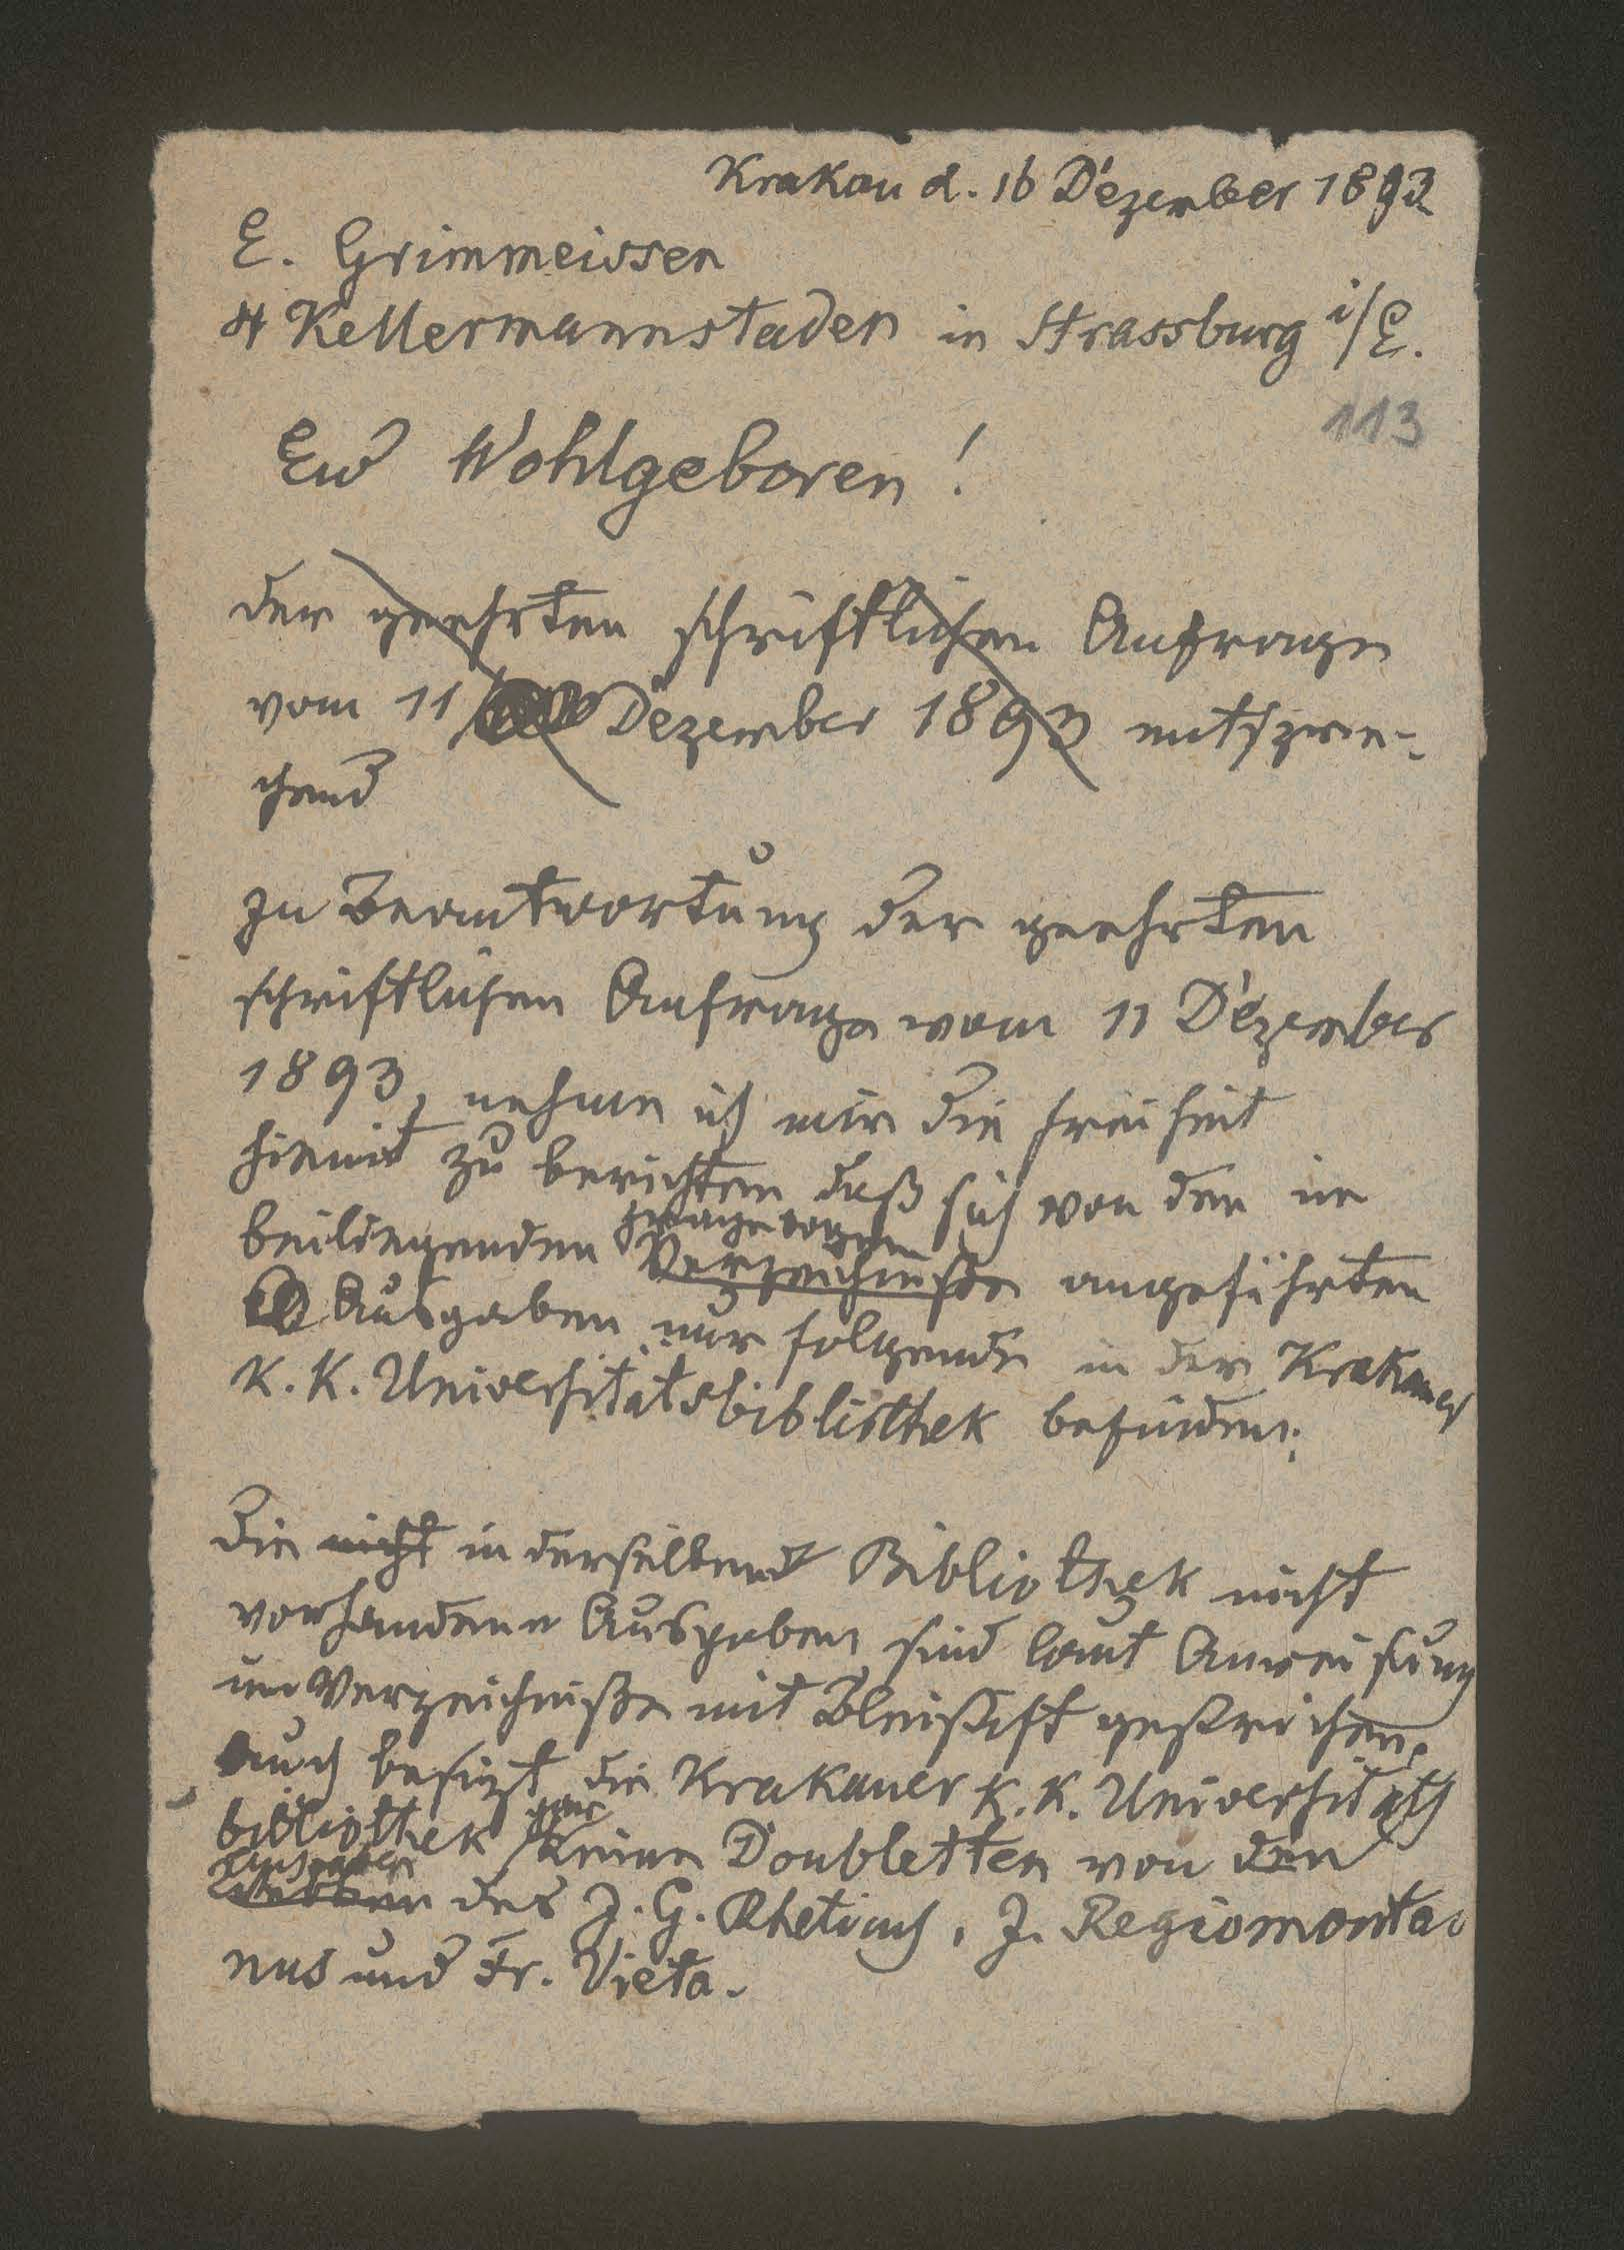 Krakau d. 16 Dezember 1893
E. Grimmeissen
4 Kellermannstaden in Strassburg i/E.
113
Ew Wohlgeboren!
der geehrten schriftlichen Anfrage
vom 11 Dezember 1893 entspre-
chend
zu Beantwortung der geehrten
schriftlichen Anfrage vom 11 Dezember
1893, nehme ich mir die freiheit
hiemit zu berichten daß sich von den in
Fragebogen
beiliegenden Verzeichniße angeführten
Ausgaben nur folgende in der Krakauer
K. K. Universitätsbibliothek befinden:
Die nicht in derselben Bibliothek nicht
vorhandene Ausgaben sind laut Anweisung
im Verzeichniße mit Bleistift gestrichen.
Auch besizt die Krakauer K. K. Universitäts
bibliothek gar keine Doubletten von den
Ausgaben
des J. G. Rheticus, J. Regiomonta-
nus und Fr. Vieta.